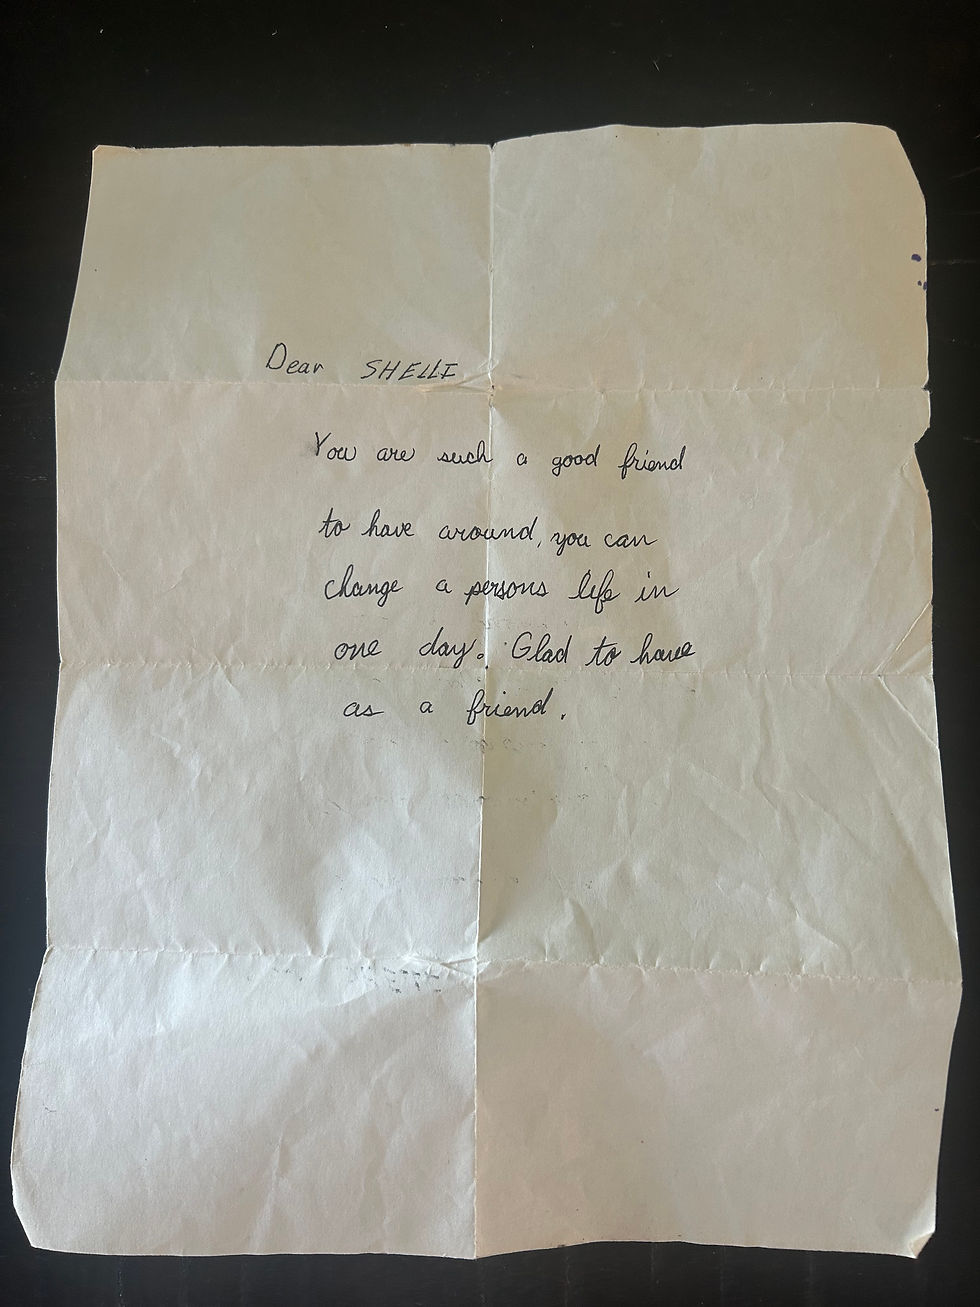 Dear SHELLI
You are such a good friend
to have around, you can
change a persons life in
one day. Glad to have
as a friend.